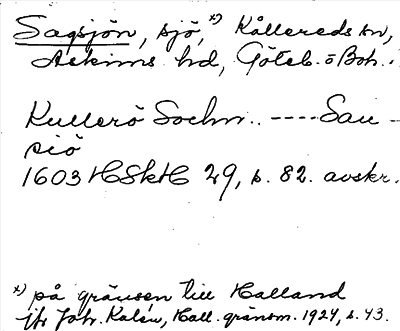 Sagsjön, sjö, x) Kållereds sn,
Askims hd, Göteb. o Boh. l
Kullerö Sochn.. ----Sau -
siö
1603 HSkH 29, s. 82. avskr.
x) på gränsen till Halland
jfr Joh. Kalén, Hall. gränsm. 1924, s. 43.